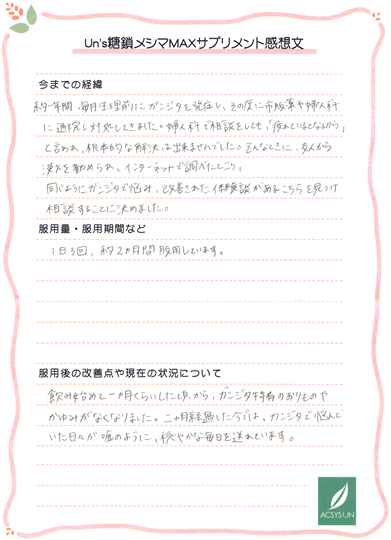 Un's糖鎖メシマMAXサプリメント感想文
今までの経緯
約一年間、毎月生理前にカンジダを発症し、その度に市販薬や婦人科
に通院し対処してきました。婦人科で相談をしても、「疲れているとなるから」
と言われ、根本的な解決は出来ませんでした。そんなときに、友人から
漢方を勧められ、インターネットで調べたところ、
同じようにカンジダで悩み、改善された体験談があるこちらを見つけ
相談することに決めました。
服用量・服用期間など
1日3回、約2カ月間服用しています。
服用後の改善点や現在の状況について
飲み始めて一ヵ月くらいした頃から、カンジダ特有のおりものや
かゆみがなくなりました。二ヵ月経過した今では、カンジダで悩んで
いた日々が嘘のように、穏やかな毎日を送れています。
ACSYS UN